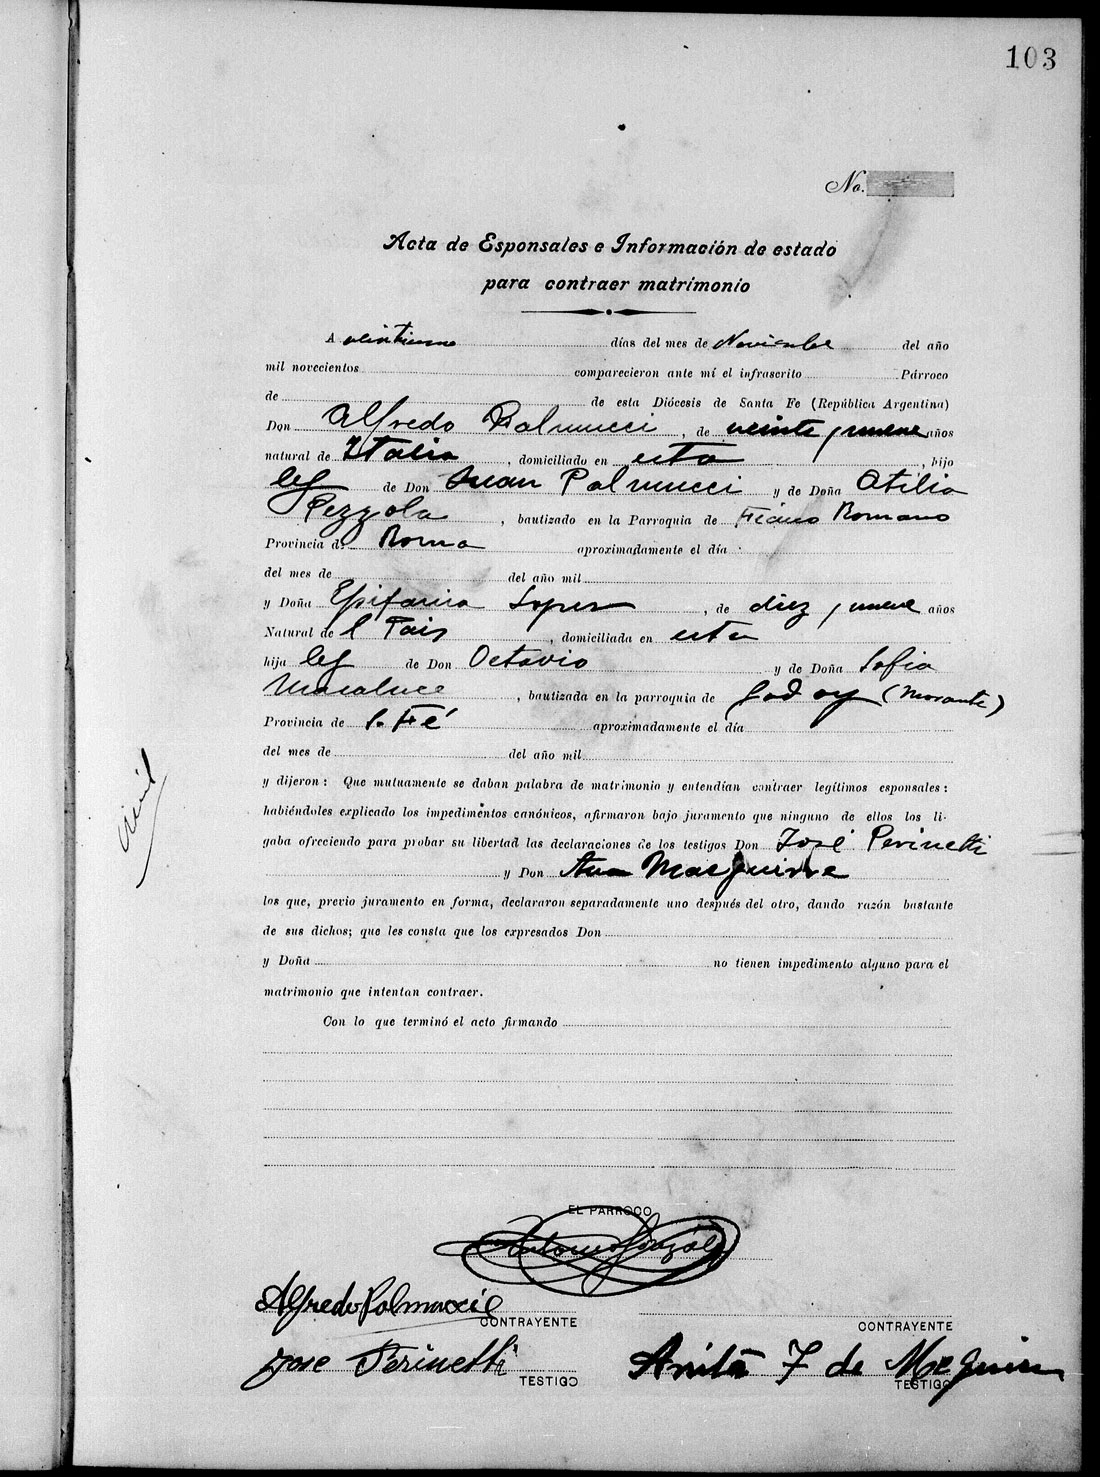 103
No.
Acta de Esponsales e Información de estado
para contraer matrimonio
A veintiuno días del mes de Noviembre del año
mil novecientos comparecieron ante mí el infrascrito Párroco
de de esta Diócesis de Santa Fe (República Argentina)
Don Alfredo Palmucci, de veinte y nueve años
natural de Italia, domiciliado en esta, hijo
leg de Don Juan Palmucci y de Doña Atilia
Pezzola, bautizado en la Parroquia de Fiano Romano
Provincia de Roma aproximadamente el día
del mes de del año mil
y Doña Epifania Lopez, de diez y nueve años
Natural de l Pais, domiciliada en esta
hija leg de Don Octavio y de Doña Sofia
Macaluce, bautizada en la parroquia de Godoy (Morante)
Provincia de S. Fé aproximadamente el día
del mes de del año mil
y dijeron: Que mutuamente se daban palabra de matrimonio y entendían contraer legítimos esponsales:
habiéndoles explicado los impedimentos canónicos, afirmaron bajo juramento que ninguno de ellos los li-
gaba ofreciendo para probar su libertad las declaraciones de los testigos Don José Perinetti
y Don Ana MacGuirre
los que, previo juramento en forma, declararon separadamente uno después del otro, dando razón bastante
de sus dichos; que les consta que los expresados Don
y Doña no tienen impedimento alguno para el
matrimonio que intentan contraer.
Con lo que terminó el acto firmando
EL PÁRROCO
Antonio González
Alfredo Palmucci
CONTRAYENTE CONTRAYENTE
Jose Perinetti Anita F de McGuire
TESTIGO TESTIGO